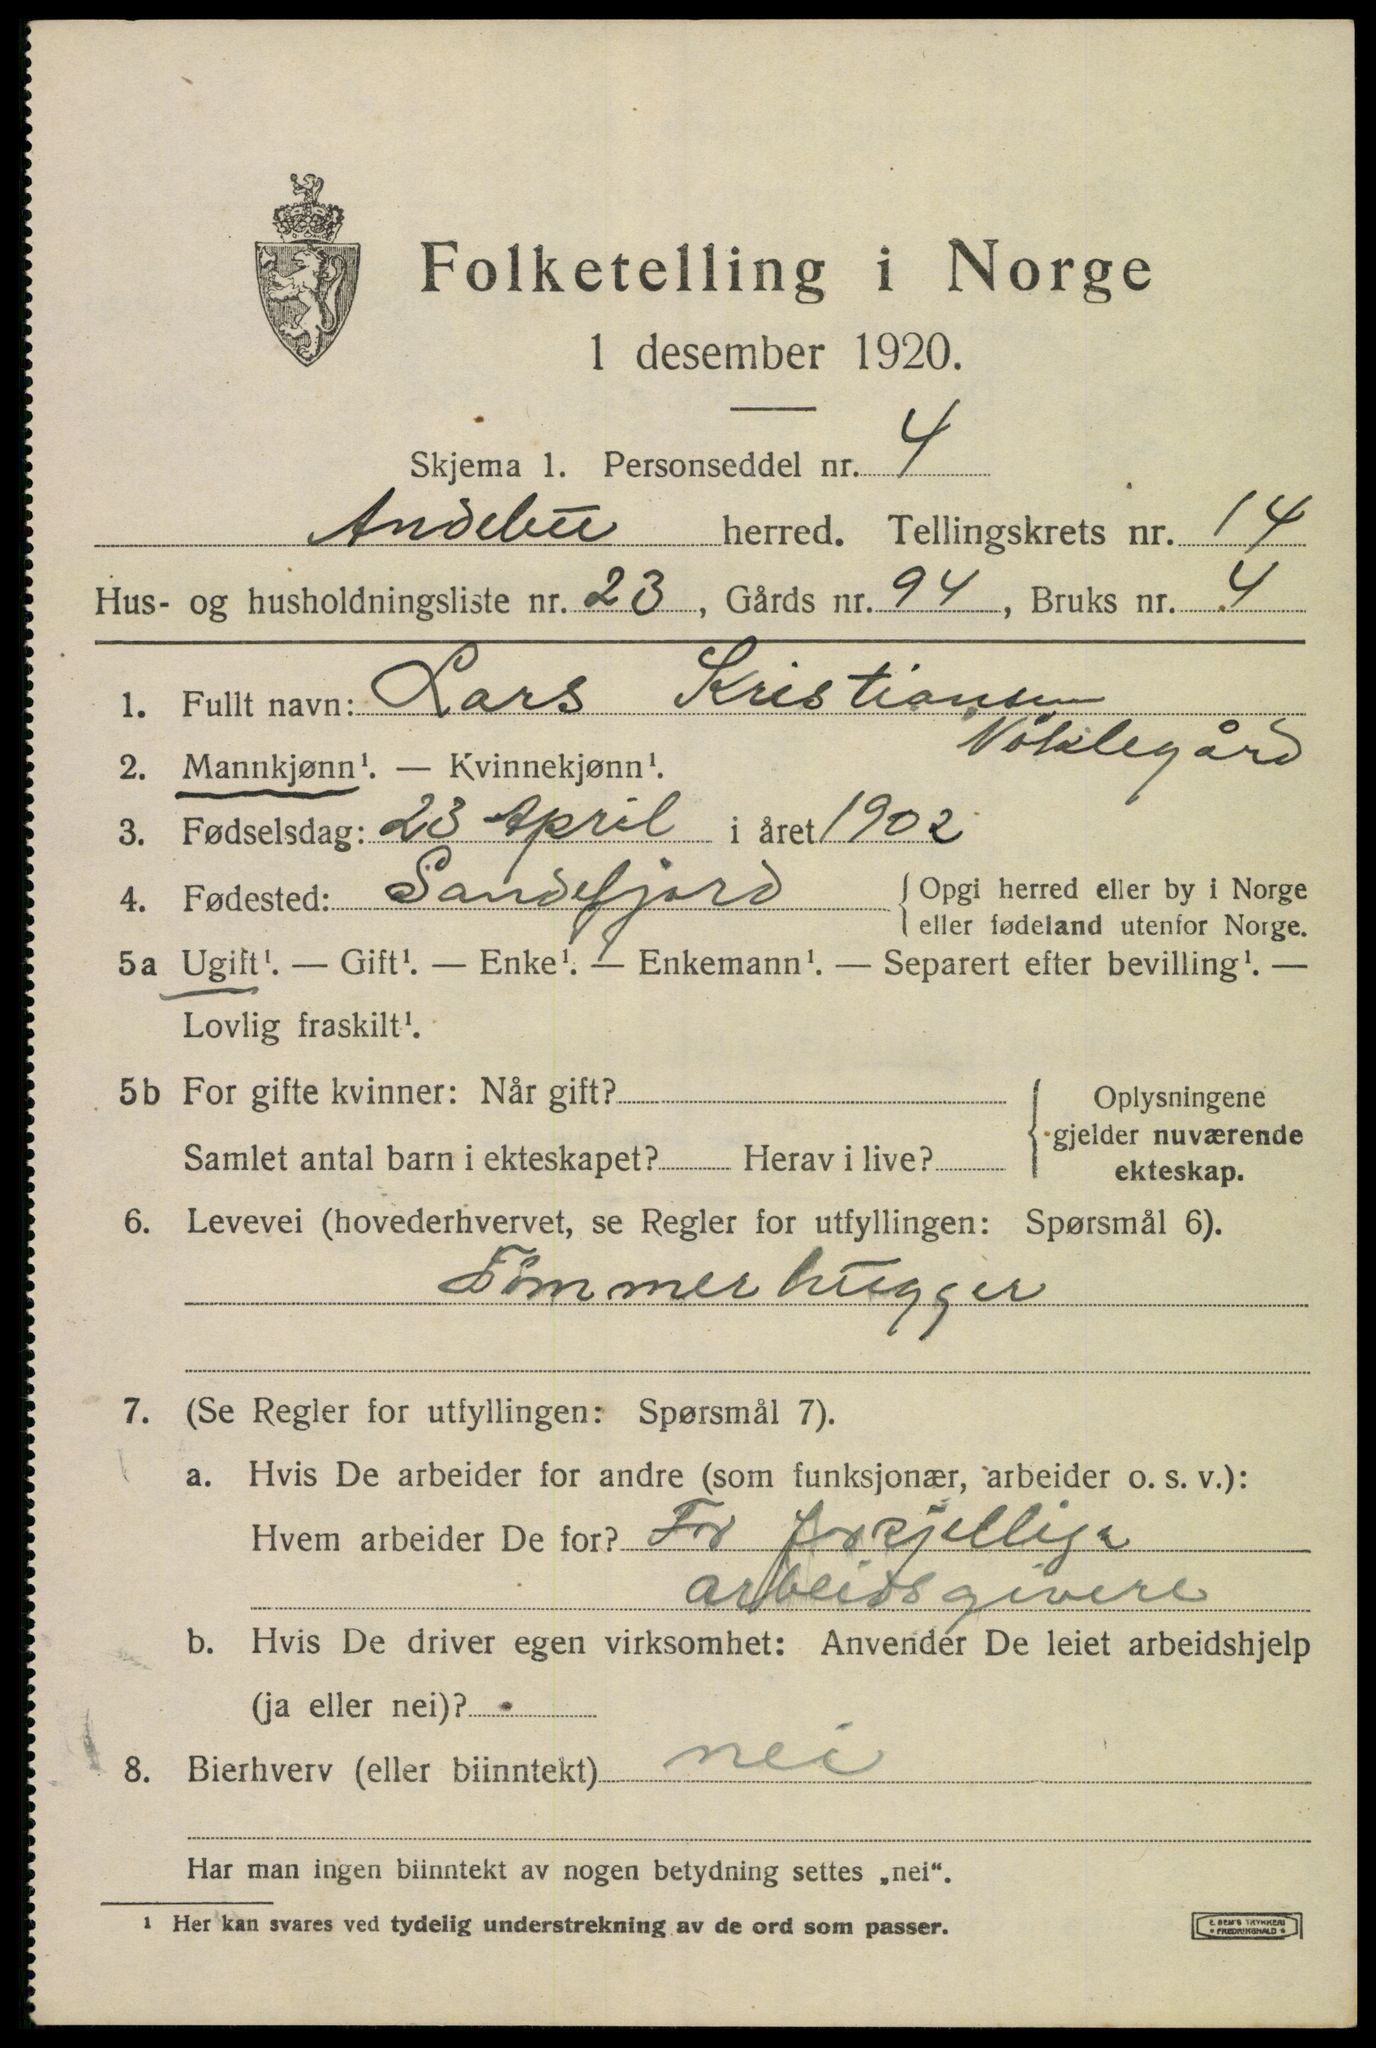 Folketelling i Norge
1 desember 1920.
Skjema 1. Personseddel nr. 4
Andebu herred. Tellingskrets nr. 14
Hus- og husholdningsliste nr. 23, Gårds nr. 94, Bruks nr. 4
1. Fullt navn: Lars Kristiansen
Nöklegård
2. Mannkjønn¹. — Kvinnekjønn¹.
3. Fødselsdag: 23 April i året 1902
4. Fødested: Sandefjord { Opgi herred eller by i Norge
eller fødeland utenfor Norge.
5a Ugift¹. — Gift¹. — Enke¹. — Enkemann¹. — Separert efter bevilling¹. —
Lovlig fraskilt¹.
5b For gifte kvinner: Når gift? { Oplysningene
gjelder nuværende
Samlet antal barn i ekteskapet? Herav i live?
ekteskap.
6. Levevei (hovederhvervet, se Regler for utfyllingen: Spørsmål 6).
Tömmerhugger
7. (Se Regler for utfyllingen: Spørsmål 7).
a. Hvis De arbeider for andre (som funksjonær, arbeider o. s. v.):
Hvem arbeider De for? For forkjellige
arbeidsgivere
b. Hvis De driver egen virksomhet: Anvender De leiet arbeidshjelp
(ja eller nei)?
8. Bierhverv (eller biinntekt) nei
Har man ingen biinntekt av nogen betydning settes „nei“.
¹ Her kan svares ved tydelig understrekning av de ord som passer.
E. SEM'S TRYKKERI
* FREDRIKSHALD *